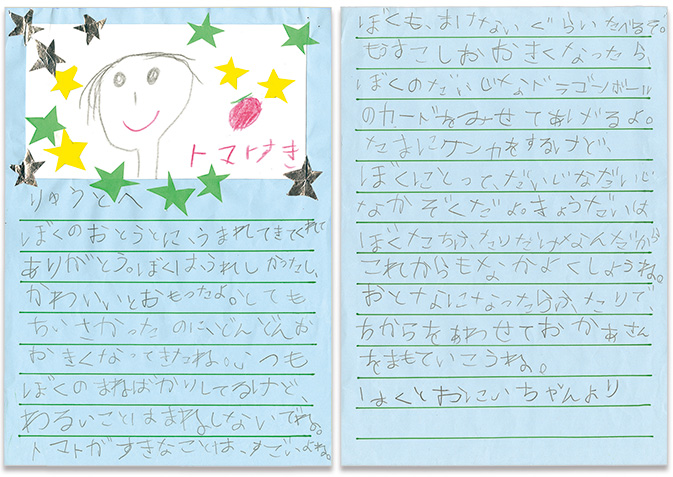 トマトすき
りゅうとへ
ぼくのおとうとに、うまれてきてくれて
ありがとう。ぼくは、うれしかったし、
かわいいとおもったよ。とても
ちいさかったのに、どんどんお
おきくなってきたね。いつも
ぼくのまねばかりしてるけど、
わるいことはまねしないでね。
トマトがすきなことは、すごいよね。
ぼくも、まけないぐらいたべるぞ。
もうすこしおおきくなったら、
ぼくのだいじなドラゴンボール
のカードをみせてあげるよ。
たまにケンカをするけど、
ぼくにとって、だいじなだいじ
なかぞくだよ。きょうだいは
ぼくたちふたりだけなんだから
これからもなかよくしようね。
おとなになったらふたりで、
ちからをあわせておかあさん
をまもていこうね。
はくとおにいちゃんより